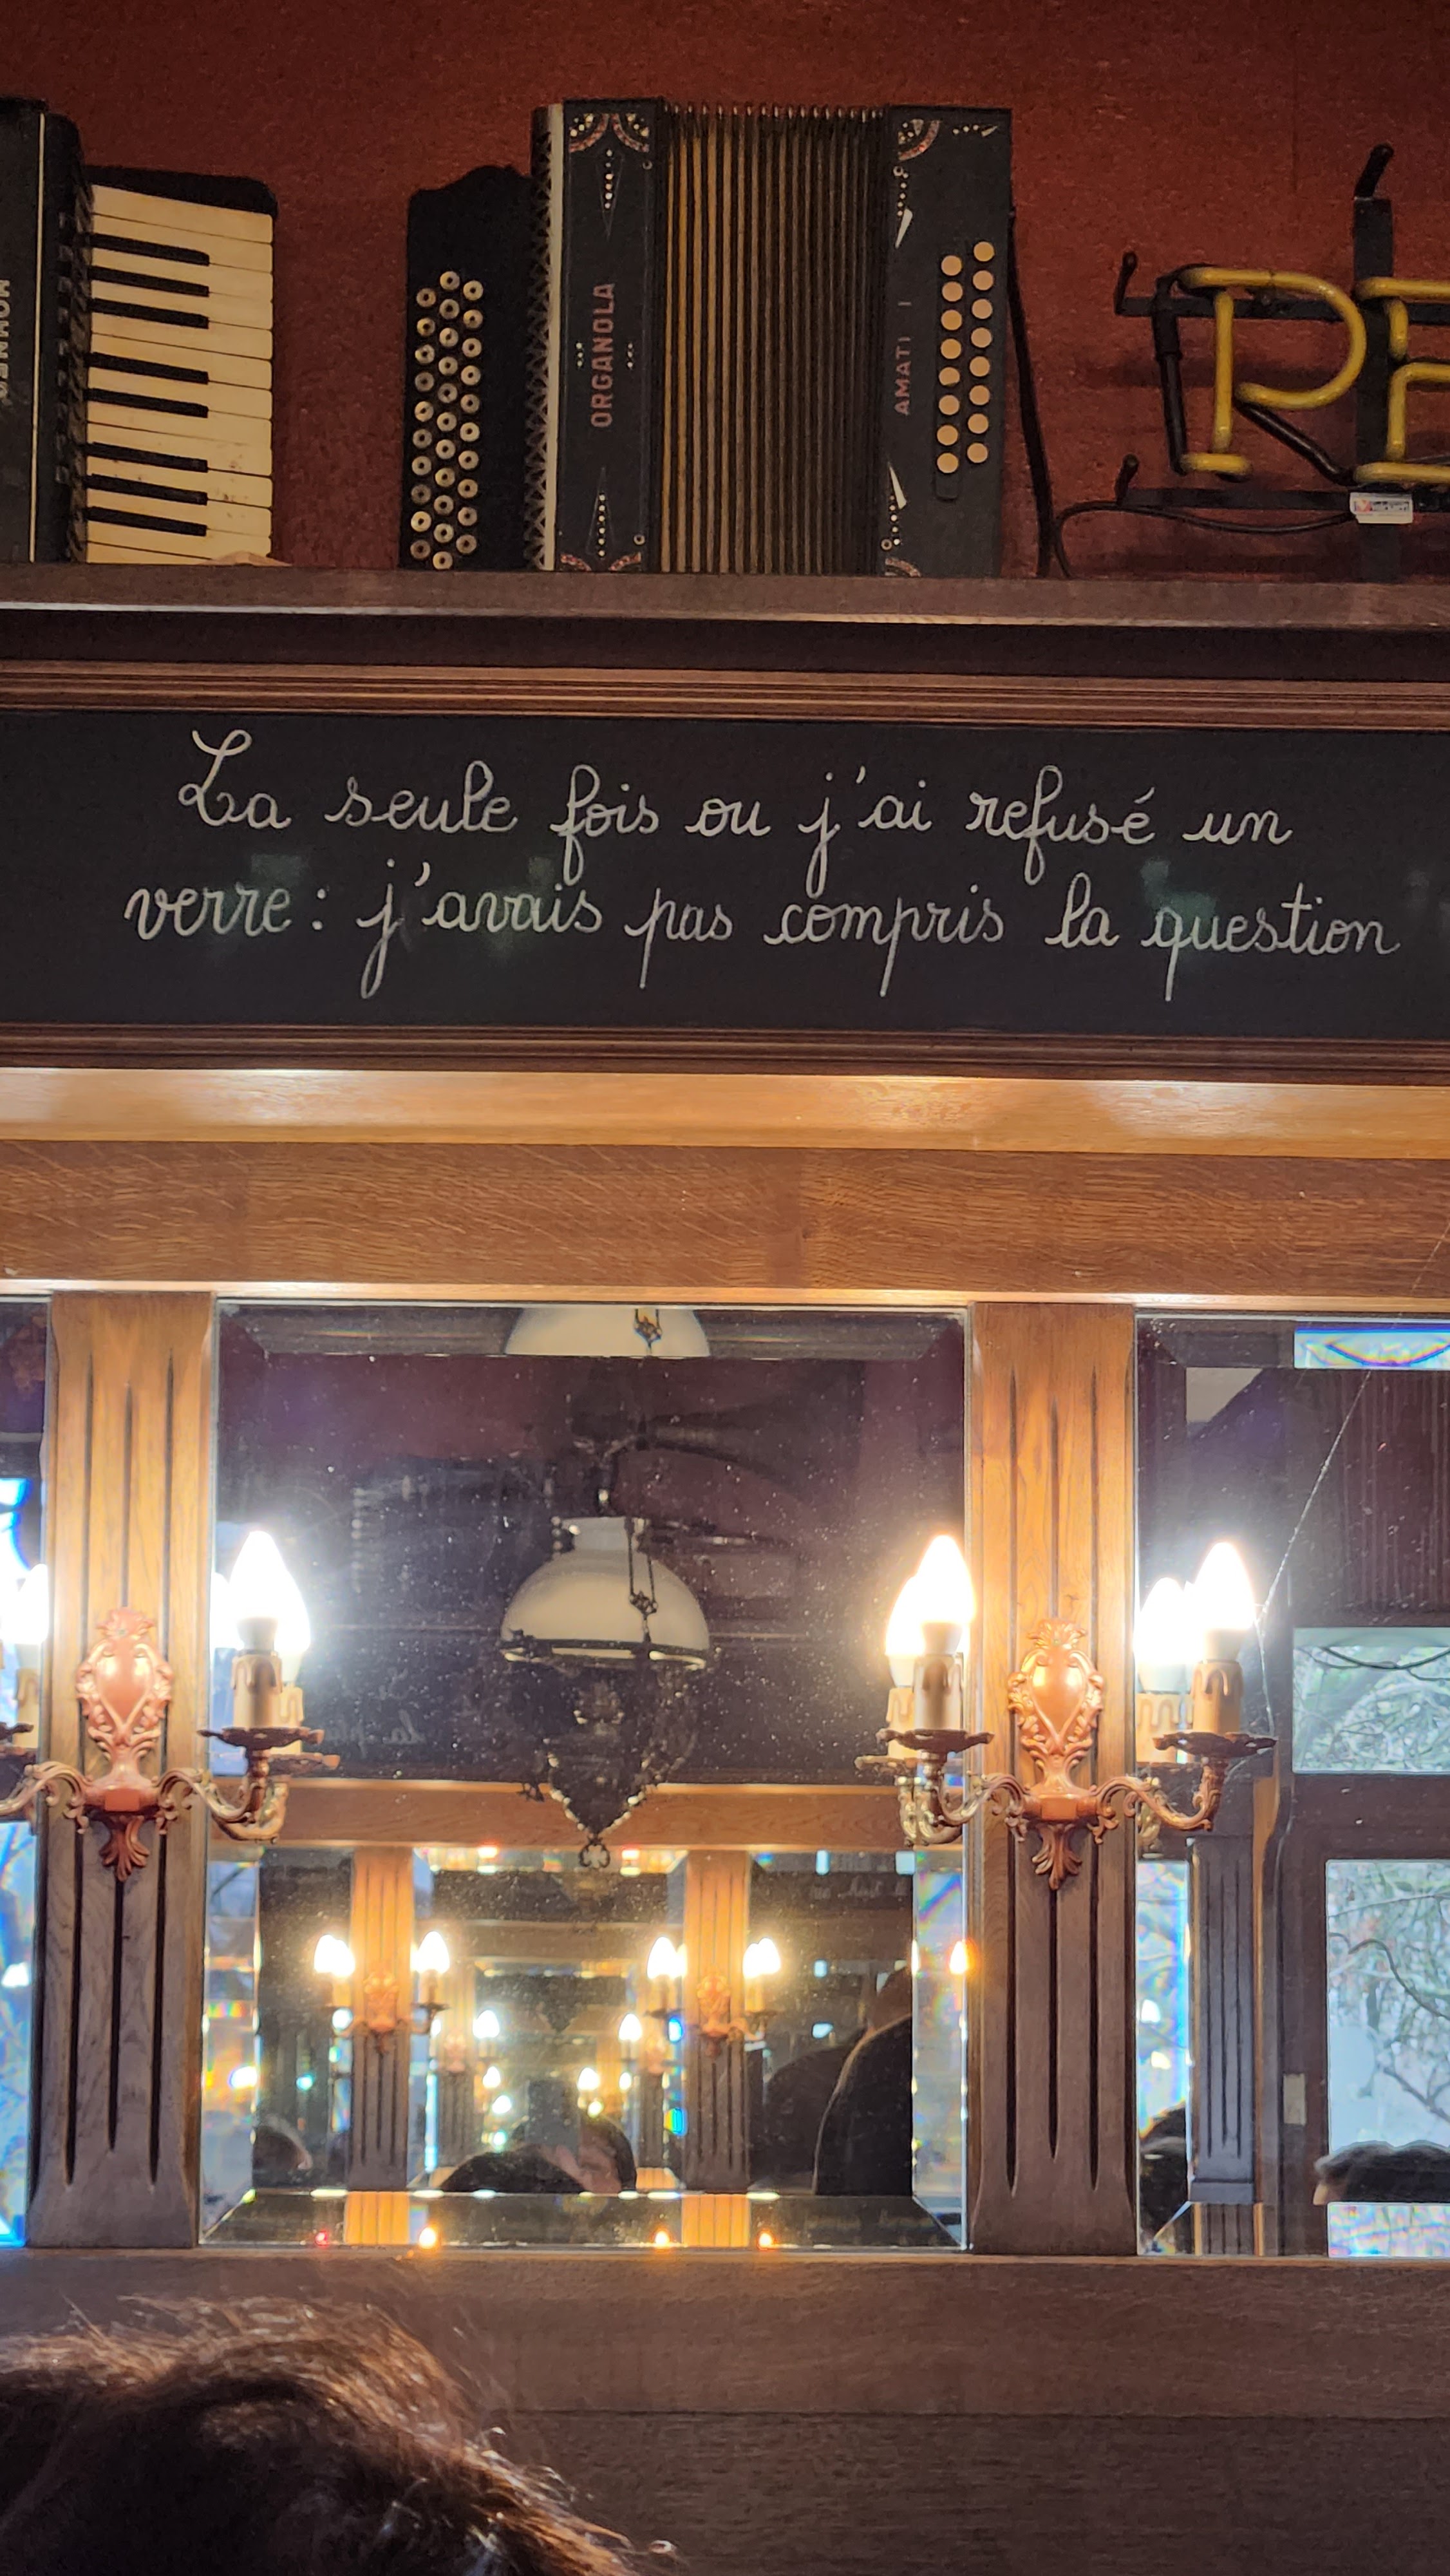 HOHNER
ORGANOLA
AMATI I
RE
La seule fois ou j'ai refusé un
verre : j'avais pas compris la question